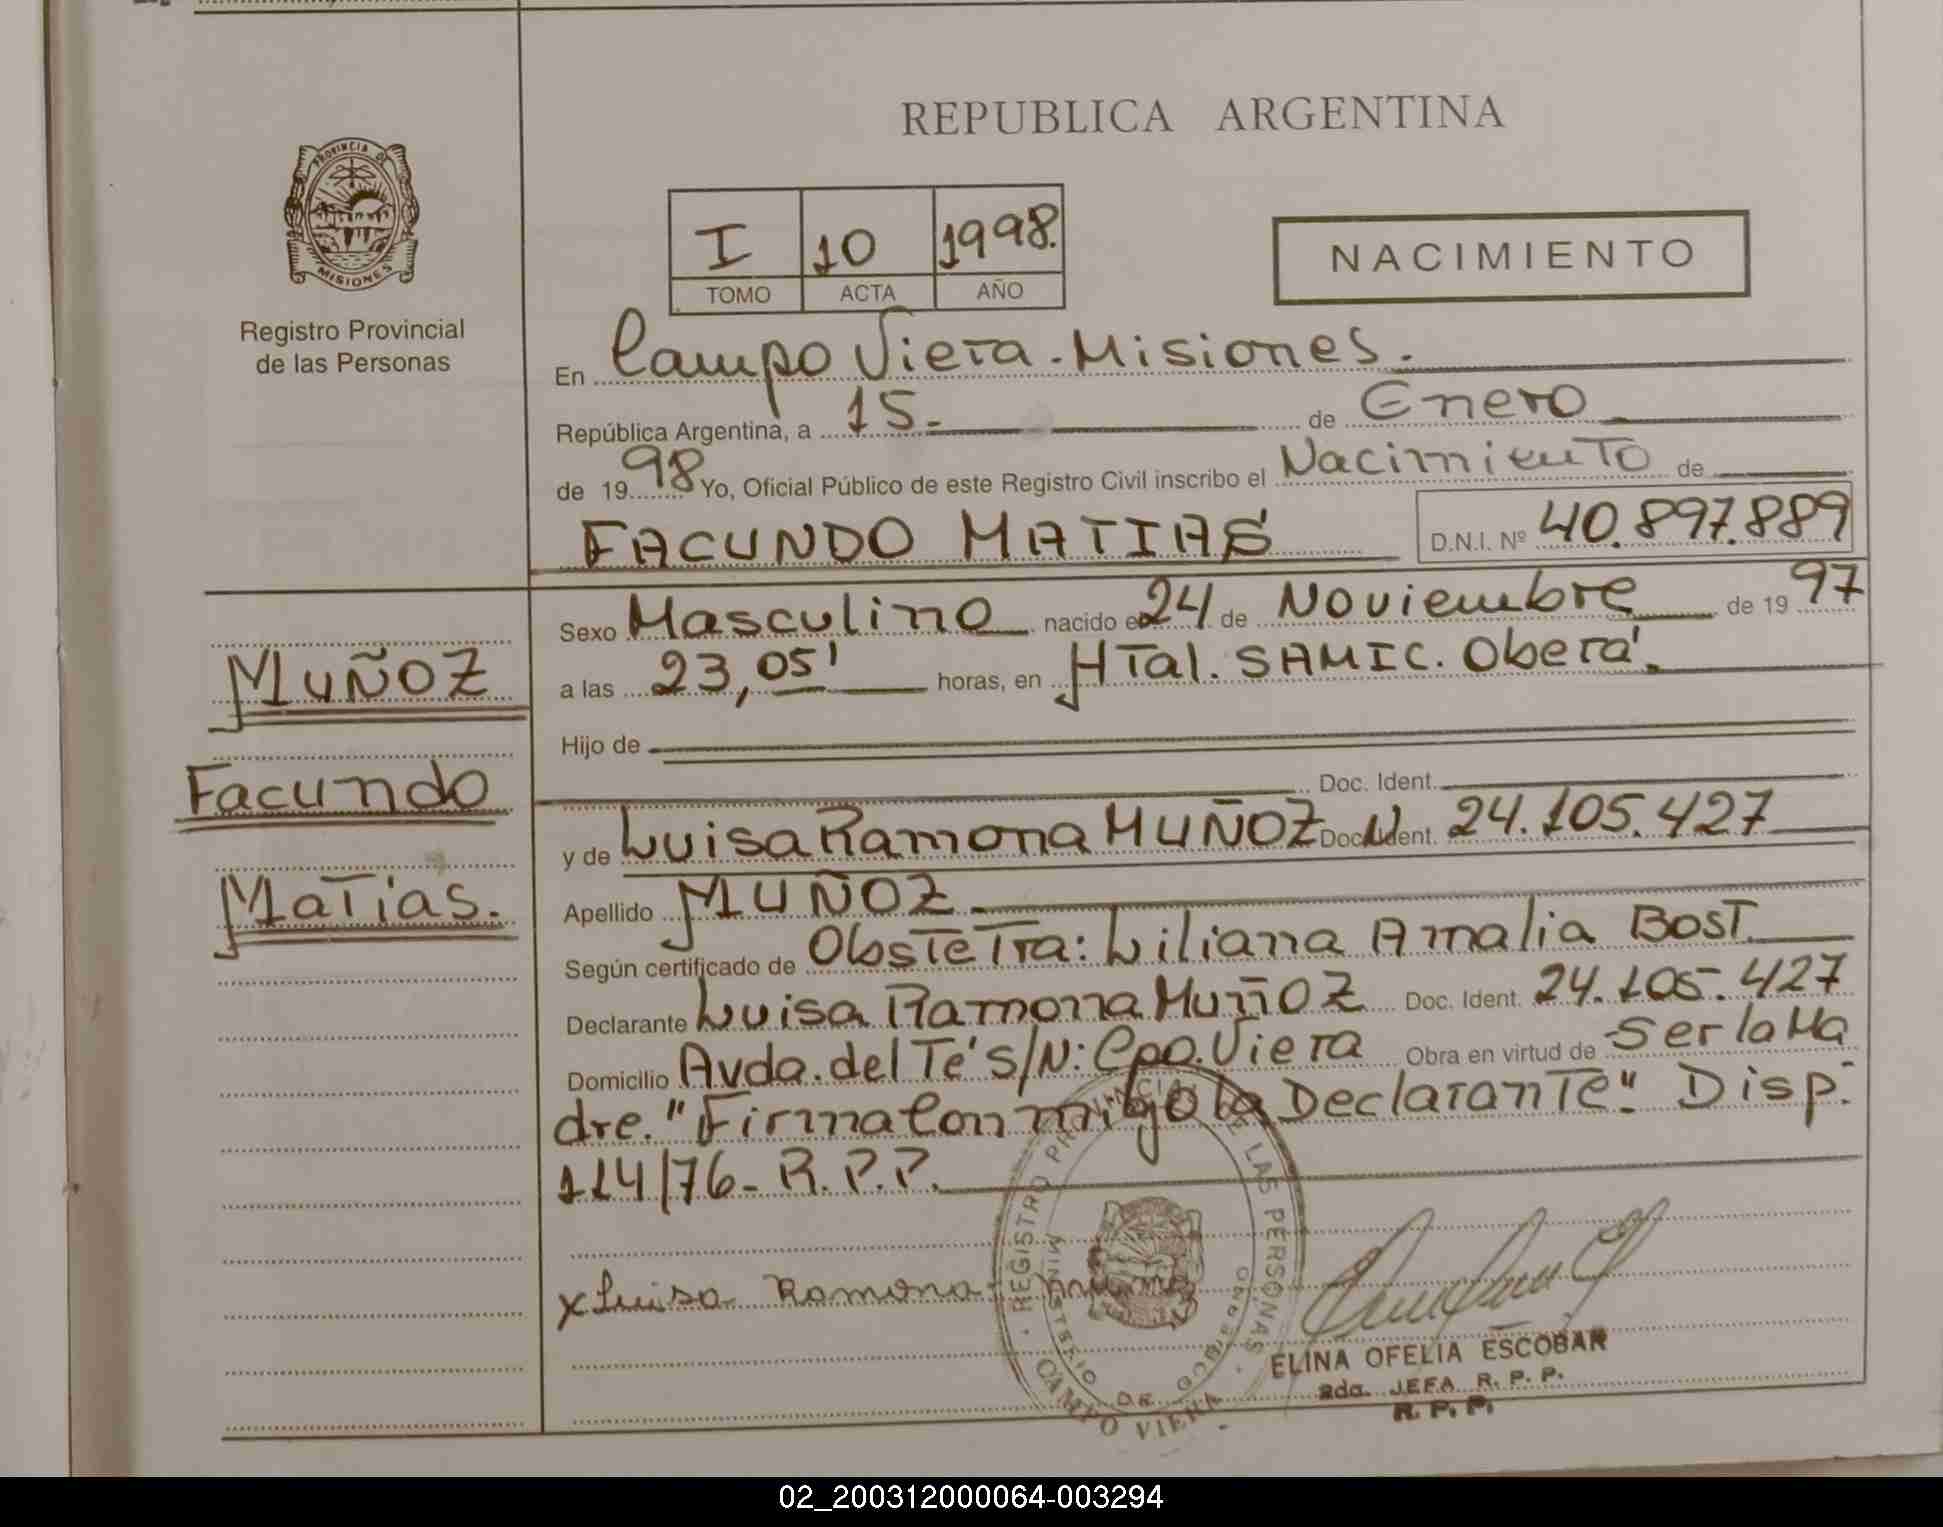 REPUBLICA ARGENTINA
PROVINCIA DE
MISIONES
Registro Provincial
de las Personas
I 10 1998.
TOMO ACTA AÑO
NACIMIENTO
En Campo Viera - Misiones.
República Argentina, a 15. de Enero
de 1998 Yo, Oficial Público de este Registro Civil inscribo el Nacimiento de
FACUNDO MATIAS D.N.I. Nº 40.897.889
MUÑOZ
Facundo
Matias.
Sexo Masculino nacido el 24 de Noviembre de 1997
a las 23,05' horas, en HTal. SAMIC. Oberá.
Hijo de
Doc. Ident.
y de Luisa Ramona MUÑOZ Doc. Ident. 24.105.427
Apellido MUÑOZ
Según certificado de Obstetra: Liliana Amalia Bost.
Declarante Luisa Ramona Muñoz Doc. Ident. 24.105.427
Domicilio Avda. del Té S/N: Cpo. Viera Obra en virtud de Ser la Ma
dre. "Firma Conmigo la Declarante" Disp:
114/76- R.P.P.
x Luisa Ramona
REGISTRO PROVINCIAL DE LAS PERSONAS
MINISTERIO DE GOBIERNO
CAMPO VIERA
ELINA OFELIA ESCOBAR
2da. JEFA R. P. P.
R. P. P.
02_200312000064-003294